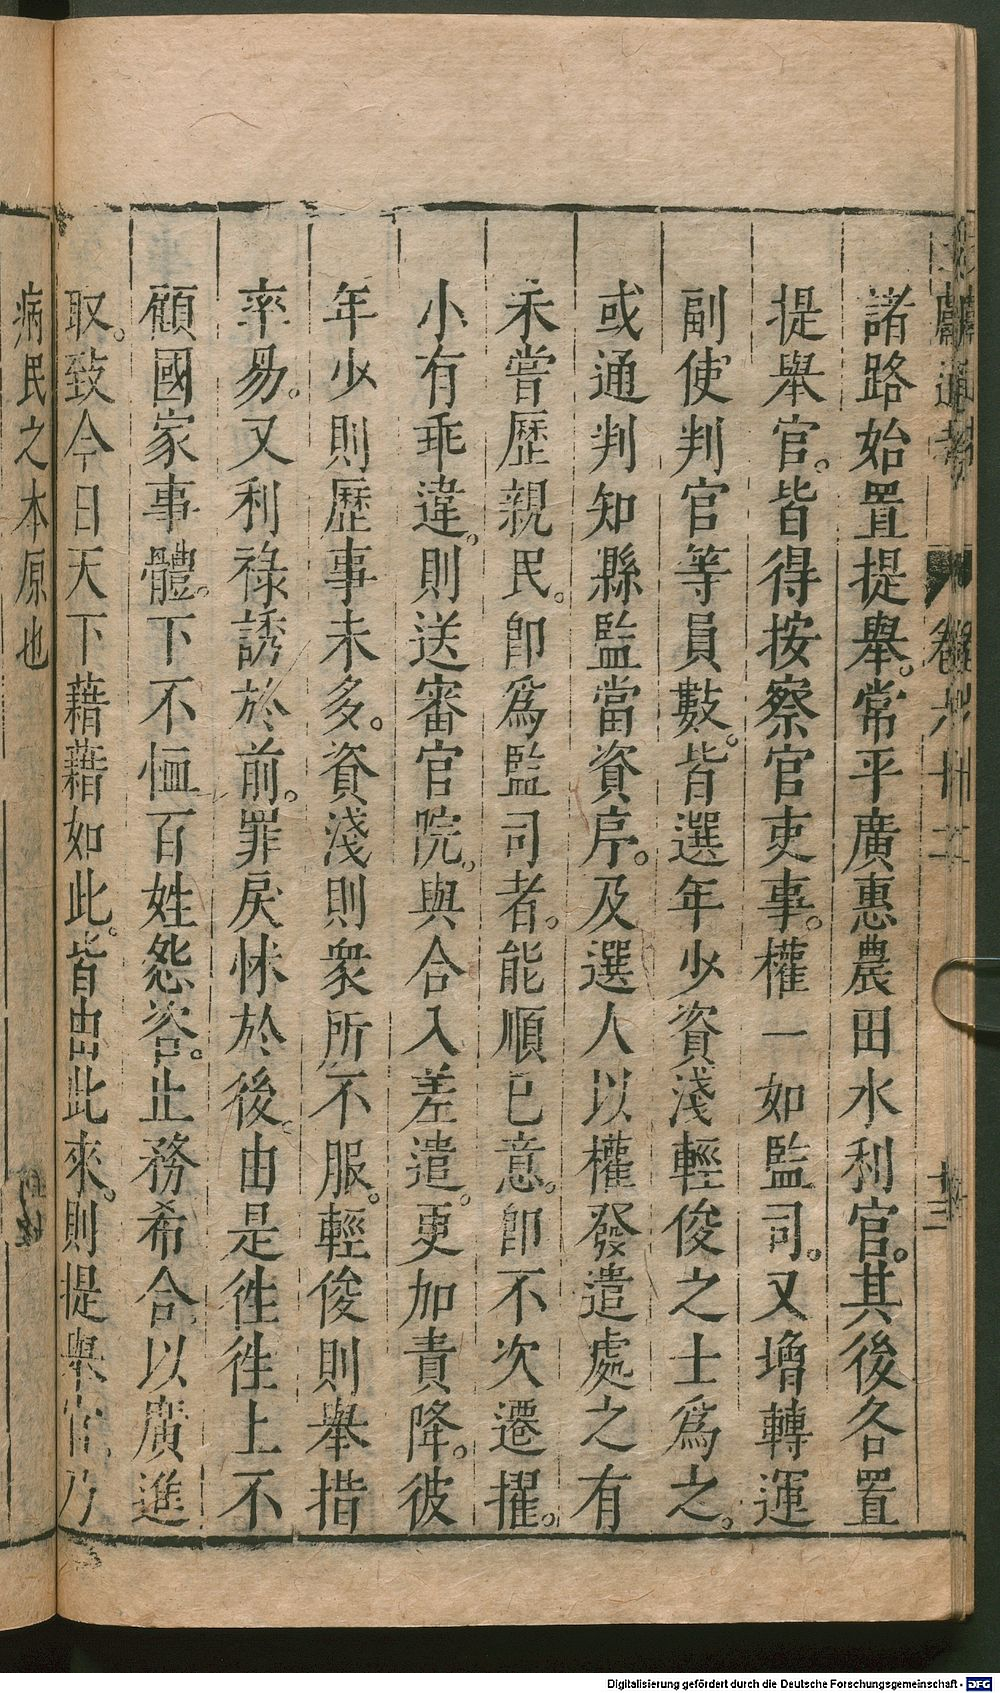 諸路始置提舉。常平廣惠農田水利官。其後各置
提舉官。皆得按察官吏事。權一如監司。又增轉運
副使判官等員數。皆選年少資淺輕俊之士爲之。
或通判知縣監當資序。及選人以權發遣處之有
未嘗歷親民。卽爲監司者。能順已意。卽不次遷擢。
小有乖違。則送審官院。與合入差遣。更加責降。彼
年少則歷事未多。資淺則衆所不服。輕俊則舉措
率易。又利祿誘於前。罪戾怵於後。由是徃徃上不
顧國家事體。下不恤百姓怨咨。止務希合。以廣進
取。致今日天下藉藉如此。皆由此來。則提舉官。乃
病民之本原也
Digitalisierung gefördert durch die Deutsche Forschungsgemeinschaft - DFG